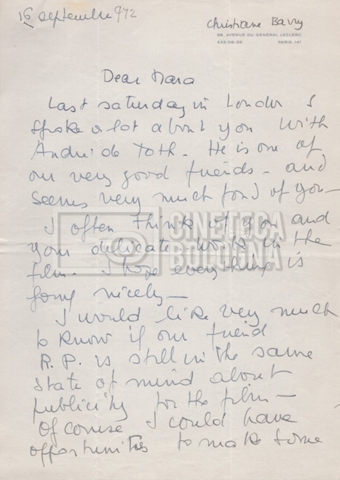 16 septembre 972
Christiane Barry
AVENUE DU GÉNÉRAL LECLERC
PARIS
Dear Mara
Last saturday in London I
spoke a lot about you with
André de Toth - He is one of
our very good friends - and
seems very much fond of you -
I often think of you and
your delicate work in the
film - I hope everything is
going nicely -
I would like very much
to know if our friend
R.P. is still in the same
state of mind about
publicity for the film -
Of course I could have
opportunities to make some
CINETECA
BOLOGNA